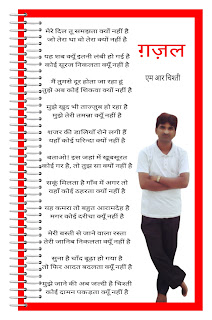 ग़ज़ल
एम आर चिश्ती
मेरे दिल तू समझता क्यों नहीं है
जो तेरा था वो तेरा क्यों नहीं है
यह शब क्यों इतनी लंबी हो गई है
कोई सूरज निकलता क्यूँ नहीं है
मैं तुमसे दूर होता जा रहा हूं
तुझे अब कोई शिकवा क्यों नहीं है
मुझे खुद भी ताज्जुब हो रहा है
मुझे तेरी तमन्ना क्यूँ नहीं है
शजर की डालियाँ रोने लगी हैं
यहाँ कोई परिन्दा क्यों नहीं है
बताओ! इस जहां में खूबसूरत
कोई गर है, तो तुझ सा क्यों नहीं है
सकूं मिलता है गाँव में अगर तो
वहाँ कोई ठहरता क्यों नहीं है
यह कमरा तो बहुत आरामदेह है
मगर कोई दरीचा क्यूँ नहीं है
मेरी बस्ती से जाने वाला रस्ता
तेरी जानिब निकलता क्यूँ नहीं है
सुना है चाँद बूढ़ा हो गया है
तो फिर आदत बदलता क्यूँ नहीं है
मुझे जाने की अब जल्दी है चिश्ती
कोई दामन पकड़ता क्यूँ नहीं है